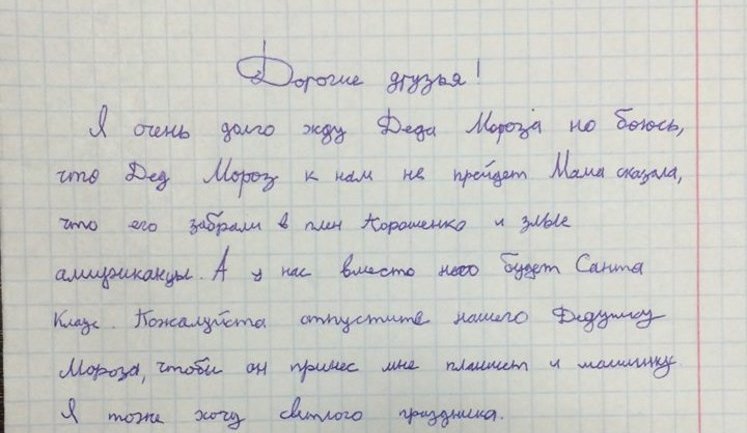 Дорогие друзья!
Я очень долго жду Деда Мороза но боюсь,
что Дед Мороз к нам не прейдет Мама сказала,
что его забрали в плен Порошенко и злые
амириканцы. А у нас вместо него будет Санта
Клаус. Пожалуйста отпустите нашего Дедушку
Мороза, чтоби он принес мне планшет и машинку.
Я тоже хочу светлого праздника.